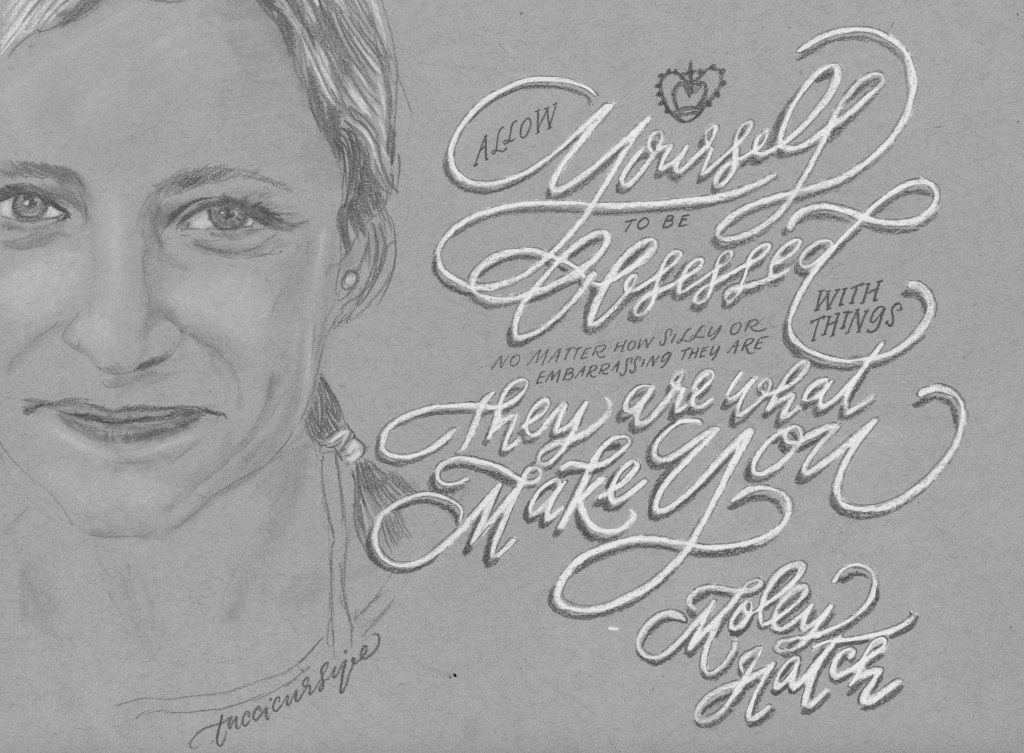 ALLOW
Yourself
TO BE
Obsessed
WITH
THINGS
NO MATTER HOW SILLY OR
EMBARRASSING THEY ARE
They are what
Make You
Molly
Hatch
tuccicursive